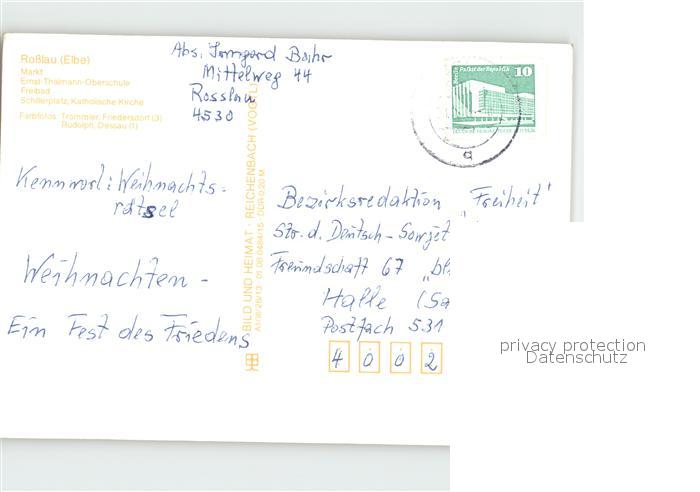 Roßlau (Elbe)
Markt
Ernst-Thälmann-Oberschule
Freibad
Schillerplatz, Katholische Kirche
Farbfotos: Trommler, Friedersdorf (3)
Rudolph, Dessau (1)
Abs. Irmgard Bahr
Mittelweg 44
Rosslau
4530
Berlin Palast der Republik
10
Kennwort: Weihnachts-
rätsel
Weihnachten -
Ein Fest des Friedens
BILD UND HEIMAT · REICHENBACH (VOGTL)
01 08 0484/15 · DDR 0,20 M
Bezirksredaktion "Freiheit"
Str. d. Deutsch-Sowjet
Freundschaft 67
Halle (Sa
Postfach 531
4 0 0 2
privacy protection
Datenschutz